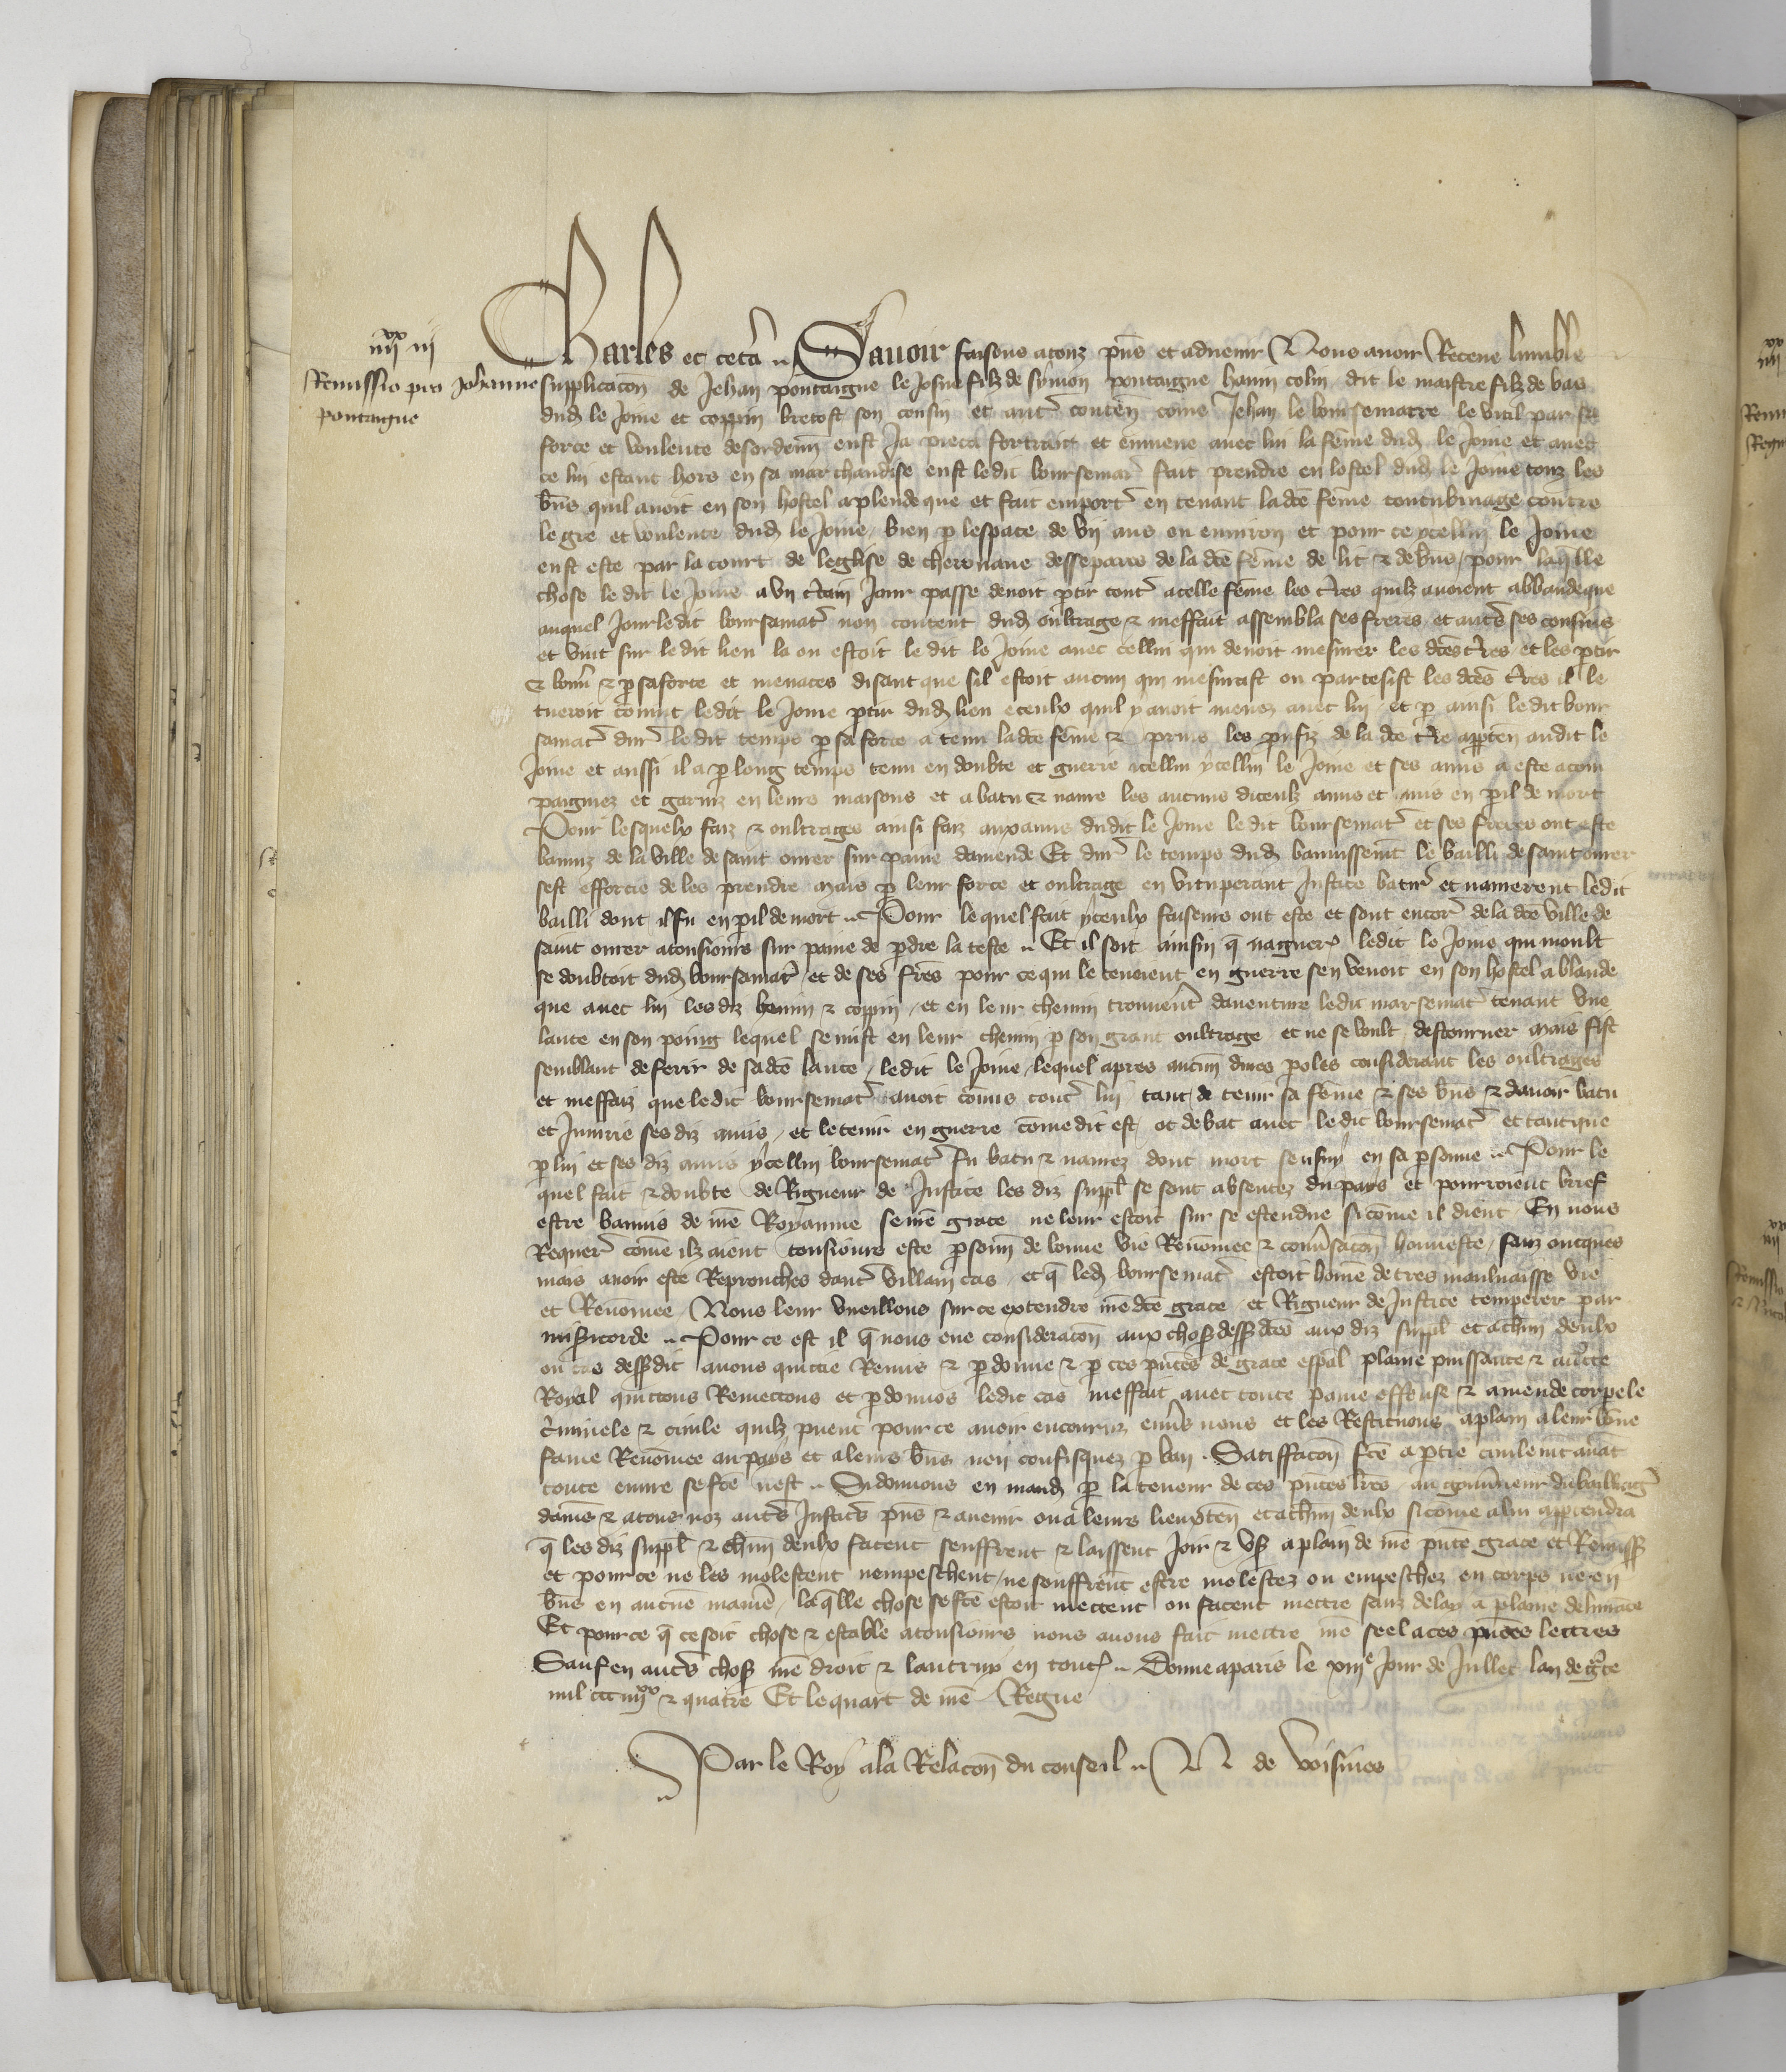 iiiixx iii
Remissio pro Johanne
pontaigue
Charles et cetā Sauoir faisons a touz pñs et aduenir Nous auoir Receue lumble
supplicacōn de Jehan pontaigue le Josne filz de symon pontaigue hanin colin dit le maistre filz de bas
dud le Joine et coppin bretost son cousin et aut̄ conten come Jehan le boursematre le viel par sa
force et voulente desordenn eust Ja pieca fortrait et enmene auec lui la fēme dud le Joine et auec
ce lui estant hors en sa marchandise eust ledit boursemat̄ fait prendre en lostel dud le Joine touz les
bn̄s quil auoit en son hostel a plendeque et fait emport̄ en tenant ladcē fēme concubinage contre
le gre et voulente dud le Joine bien p lespace de vij ans ou enuiron et pour ce ycellui le Joine
eust este par la court de leglise de therouane dessepares de la dcē fēme de lit & de bn̄s pour laqlle
chose le dit le Joine a vn c̄tain Jour passe deuoit ptir cont̄ a celle fēme les t̄res quilz auoient a bbandeque
auquel Jour ledit boursamat̄ non content dud oultrage & meffait assembla ses freres et aut̄s ses cousins
et vint sur le dit lieu la ou estoit le dit le Joine auec cellui qui deuoit mesurer les dc̄es t̄res et les ptir
& p sa force et menaces disant que sil estoit aucun qui mesurast ou partesist les dc̄es t̄res il le
tueroit conuint ledit le Joine ptir dud lieu et ceulx quil y auoit menez auec lui et p ainsi le dit bour
samat̄ dur̄ le dit temps p sa force a tenu ladcē fēme & prins les proufiz de la dcē t̄re apptēn audit le
Joine et aussi il a p long temps tenu en doubte et guerre icellui ycellui le Joine et ses amis a este acom
paigniez et garniz en leurs maisons et a batu & naure les aucuns diceulx amis et mis en pil de mort
Pour lesquelx faiz & oultrages ainsi faiz aux amis dudit le Joine le dit boursemat̄ et ses freres ont este
banniz de la ville de saint omer sur paine damende Et dur̄ le temps dud bannissemt le bailli de saint omer
sest efforcie de les prendre mais p leur force et oultrage en vituperant Justice batir̄ et naurerent ledit
bailli dont il fu en pil de mort Pour lequel fait yceulx faiseurs ont este et sont encor̄ de la dcē ville de
saint omer a tousiours sur paine de pdre la teste Et il soit ainsin q naguer̄ ledit le Joine qui moult
se doubtoit dud boursamat̄ et de ses fres pour ce qui le tenoient en guerre sen venoit en son hostel a blande
que auec lui lesdiz hanin & coppin et en leur chemin trouuent̄ dauenture ledit marsemat̄ tenant vne
lance en son poing lequel se mist en leur chemin p son grant oultrage et ne se voult destourner mais fist
semblant de ferir de sadcē lance ledit le Joine lequel apres aucun̄ dures poles considerant les oultrages
et meffaiz que ledit boursemat̄ auoit cōmis cont̄ lui tant de tenir sa fēme & ses bn̄s & dauoir batu
et Iniurie ses diz amis et le tenir en guerre cōme dit est ot debat auec ledit boursemat̄ et tant que
p lui et ses diz amis ycellui boursemat̄ fu batu & naurez dont mort sensuy en sa psonne Pour le
quel fait & doubte de Rigueur de Justice les diz suppl̄ se sont absentez du pays et pourroient brief
estre bannis de nr̄e Royaume se nr̄e grace ne leur estoit sur se estendue si cōme il dient En nous
Requer̄ cōme ilz aient tousiours este psonn̄ de bonne vie Renōmee & conūsacōn honneste sanz oncques
mais auoir este Reprouches daut̄ villain cas et q led boursemat̄ estoit hōme de tres mauluaisse vie
et Renōmee Nous leur vueillons sur ce extendre nr̄e dcē grace et Rigueur de Justice temperer par
misericorde Pour ce est il q nous eue consideracōn aux chos̄ dess dc̄es aux diz suppl̄ et a chūn deulx
ou cas dess dit auons quictie Remis & pdonne & p ces pñtes de grace esp̄al plaine puissance & auc̄te
Royal quictons Remectons et pdonnōs ledit cas meffait auec toute paine offense & amende corpele
c̄iminele & ciuile quilz puent pour ce auoir encouruz enūs nous et les Restituons a plain a leur bōne
fame Renōmee au pays et a leurs bn̄s non confisquez p ban Satiffacōn fcē a ptie ciuilemt auāt
toute euure se fcē nest Si donnons en mand p la teneur de ces pñtes lr̄es au gouūneur du bailliaḡ
damiēs & a tous noz aut̄s Justic̄s pñs & auenir ou a leurs lieuxtēn et a chūn deulx si cōme a lui appendra
q les diz suppl̄ & chūn deulx facent seuffrent & laissent Joir & vs̄ a plain de nr̄e pñte grace et Remiss̄
et pour ce ne les molestent nempeschent ne souffrent estre molestez ou empeschez en corps ne en
bn̄s en aucune maniē laqlle chose se fcē estoit mectent ou facent mettre sanz delay a plaine deliurāce
Et pour ce q ce soit chose & estable a tousiours nous auons fait mettre nr̄e seel a ces pñtes lettres
Sauf en aut̄s chos̄ nr̄e droit & lautruy en tout̄ Donne a paris le xiije Jour de Jullet lan de gr̄ce
mil ccc iiiixx & quatre Et le quart de nr̄e Regne
Par le Roy a la Relacōn du conseil N de voisines